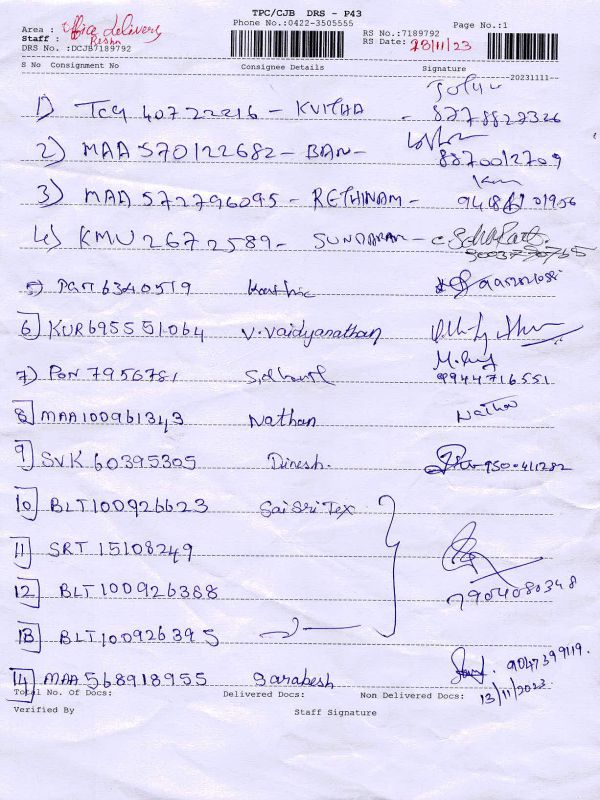 TPC/CJB DRS - P43
Phone No.:0422-3505555
Page No.:1
Area : office delivery
Staff :
DRS No. :DCJB7189792
RS No.:7189792
RS Date: 28/11/23
S No Consignment No Consignee Details Signature
20231111--
1) TCG 40722216 - KVITHA - 8778827326
2) MAA 570122682 - BAN - 8870012709
3) MAA 572796095 - RETHINAM -
4) KMU 2672589 - SUNDARAM -
5) PGT 6340519 Karthic
6) KUR695551064 V. Vaidyanathan
7) PON 7956781 9944716551
8 MAA100961343 Nathan Nathan
9 SVK 60395305 Dinesh. 9500411282
10 BLT100926623 Sai Sri Tex
11 SRT 15108249
12 BLT100926388 7904080348
13 BLT100926395
14 MAA 568918955 Sarabesh 9047399119.
13/11/2023
Total No. Of Docs: Delivered Docs: Non Delivered Docs:
Verified By Staff Signature